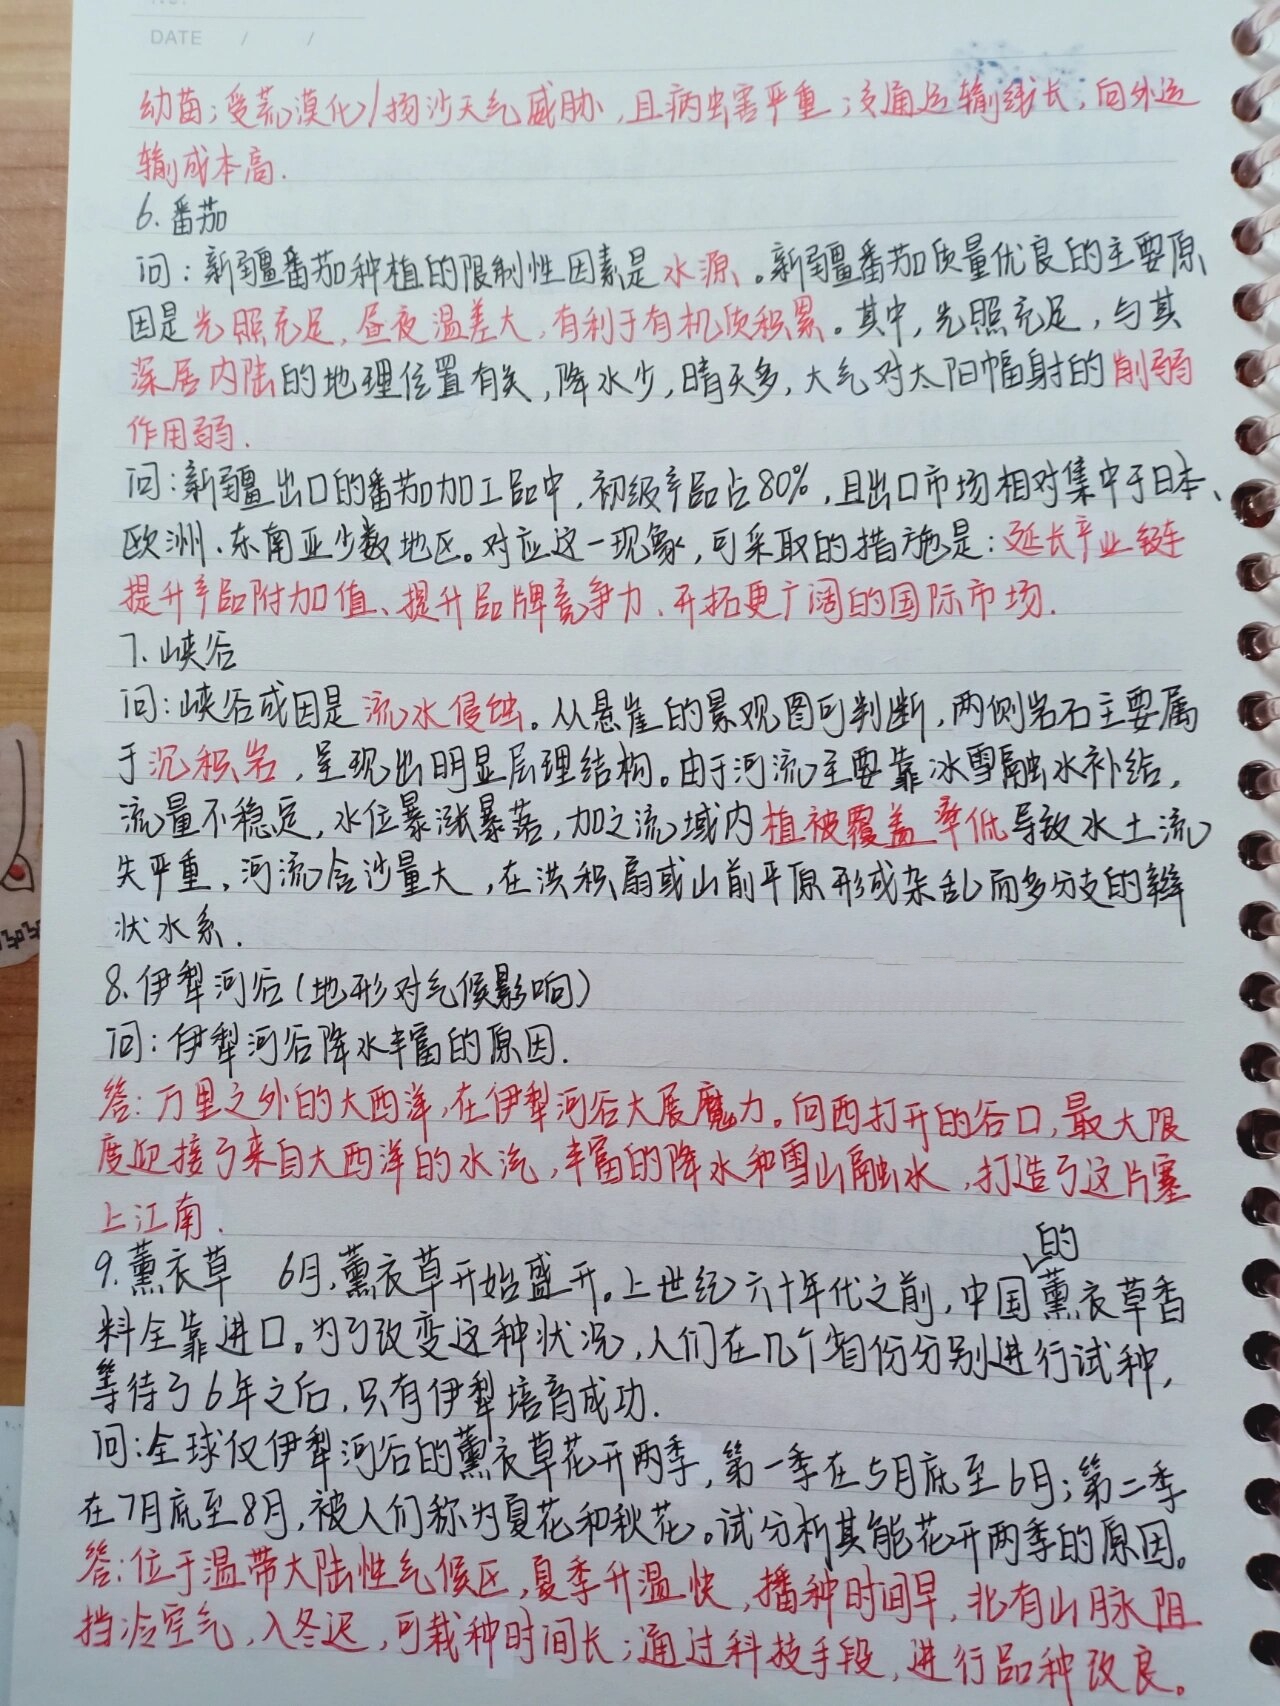 DATE / /
幼苗;受荒漠化/扬沙天气威胁,且病虫害严重;交通运输线长,向外运
输成本高.
6.番茄
问:新疆番茄种植的限制性因素是水源。新疆番茄质量优良的主要原
因是光照充足,昼夜温差大,有利于有机质积累。其中,光照充足,与其
深居内陆的地理位置有关,降水少,晴天多,大气对太阳幅射的削弱
作用弱.
问:新疆出口的番茄加工品中,初级产品占80%,且出口市场相对集中于日本、
欧洲.东南亚少数地区。对应这一现象,可采取的措施是:延长产业链
提升产品附加值、提升品牌竞争力、开拓更广阔的国际市场.
7.峡谷
问:峡谷成因是流水侵蚀。从悬崖的景观图可判断,两侧岩石主要属
于沉积岩,呈现出明显层理结构。由于河流主要靠冰雪融水补给,
流量不稳定,水位暴涨暴落,加之流域内植被覆盖率低导致水土流
失严重,河流含沙量大,在洪积扇或山前平原形成杂乱而多分支的辫
状水系.
8.伊犁河谷(地形对气候影响)
问:伊犁河谷降水丰富的原因.
答:万里之外的大西洋,在伊犁河谷大展魔力。向西打开的谷口,最大限
度迎接了来自大西洋的水汽,丰富的降水和雪山融水,打造了这片塞
上江南.
9.薰衣草 6月,薰衣草开始盛开。上世纪六十年代之前,中国的薰衣草香
料全靠进口。为了改变这种状况,人们在几个省份分别进行试种,
等待了6年之后,只有伊犁培育成功.
问:全球仅伊犁河谷的薰衣草花开两季,第一季在5月底至6月;第二季
在7月底至8月,被人们称为夏花和秋花。试分析其能花开两季的原因。
答:位于温带大陆性气候区,夏季升温快,播种时间早,北有山脉阻
挡冷空气,入冬迟,可栽种时间长;通过科技手段,进行品种改良。